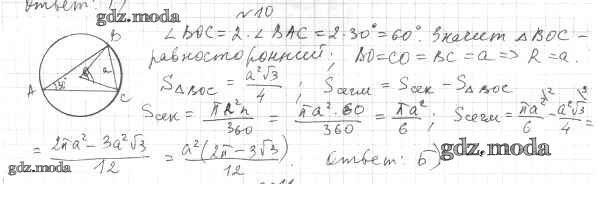 Ответ: 
gdz.moda
№10
∠BOC = 2·∠BAC = 2·30° = 60°. Значит △BOC –
равносторонний; BO=CO=BC=a => R=a.
S△BOC = a²√3/4; Sсегм = Sсек – S△BOC
Sсек = πR²n/360 = πa²·60/360 = πa²/6; Sсегм = πa²/6 – a²√3/4 =
= 2πa²–3a²√3/12 = a²(2π–3√3)/12. Ответ: б)
gdz.moda
gdz.moda
B
A
C
30°
a